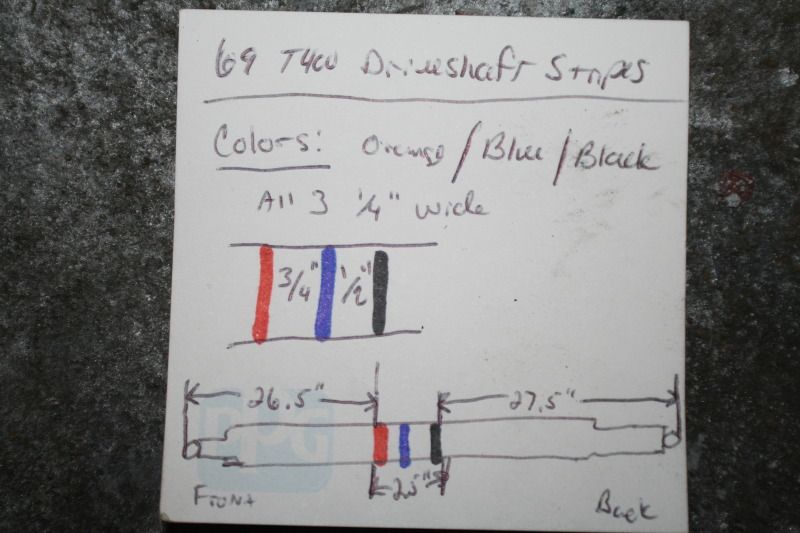 69 T400 Driveshaft Stripes
Colors: Orange / Blue / Black
All 3 1/4" wide
3/4" 1/2"
26.5" 27.5"
2.5"
Front Back
PPG